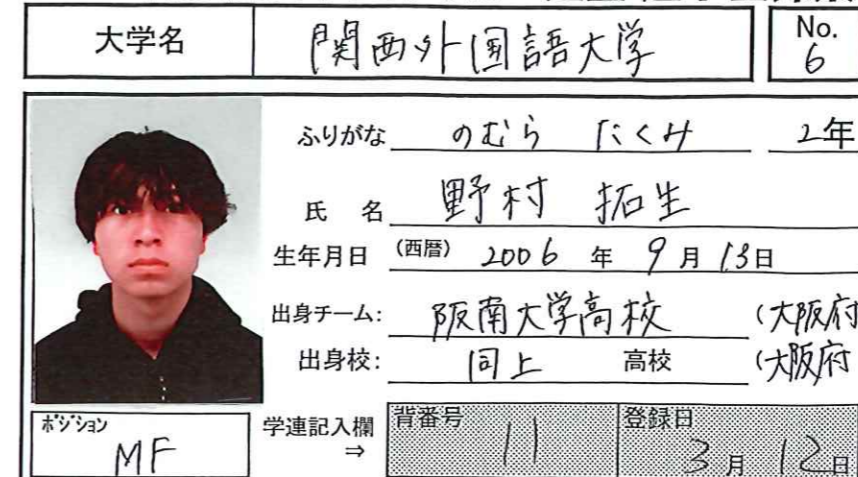 大学名 関西外国語大学 No. 6
ふりがな のむら たくみ 2年
氏 名 野村 拓生
生年月日 (西暦) 2006 年 9 月 13 日
出身チーム: 阪南大学高校 (大阪府
出身校: 同上 高校 (大阪府
ポジション MF
学連記入欄 ⇒ 背番号 11 登録日 3 月 12 日